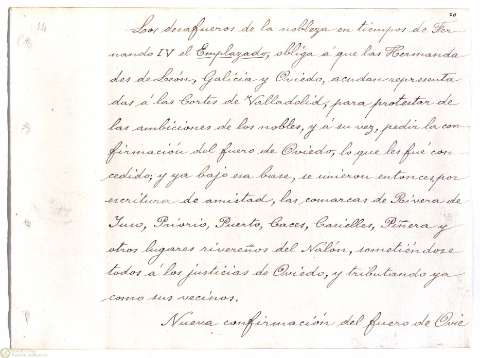 20
Los desafueros de la nobleza en tiempos de Fer-
nando IV el Emplazado, obliga á que las Hermanda
des de León, Galicia y Oviedo, acudan representa
das á las Cortes de Valladolid, para protestar de
las ambiciones de los nobles, y á su vez, pedir la con-
firmación del fuero de Oviedo, lo que les fué con
cedido; y ya bajo esa base, se unieron entonces por
escritura de amistad, las comarcas de Rivera de
Juso, Priorio, Puerto, Caces, Caxielles, Piñera y
otros lugares rivereños del Nalón, sometiéndose
todos á los justicias de Oviedo, y tributando ya
como sus vecinos.
Nueva confirmación del fuero de Ovie